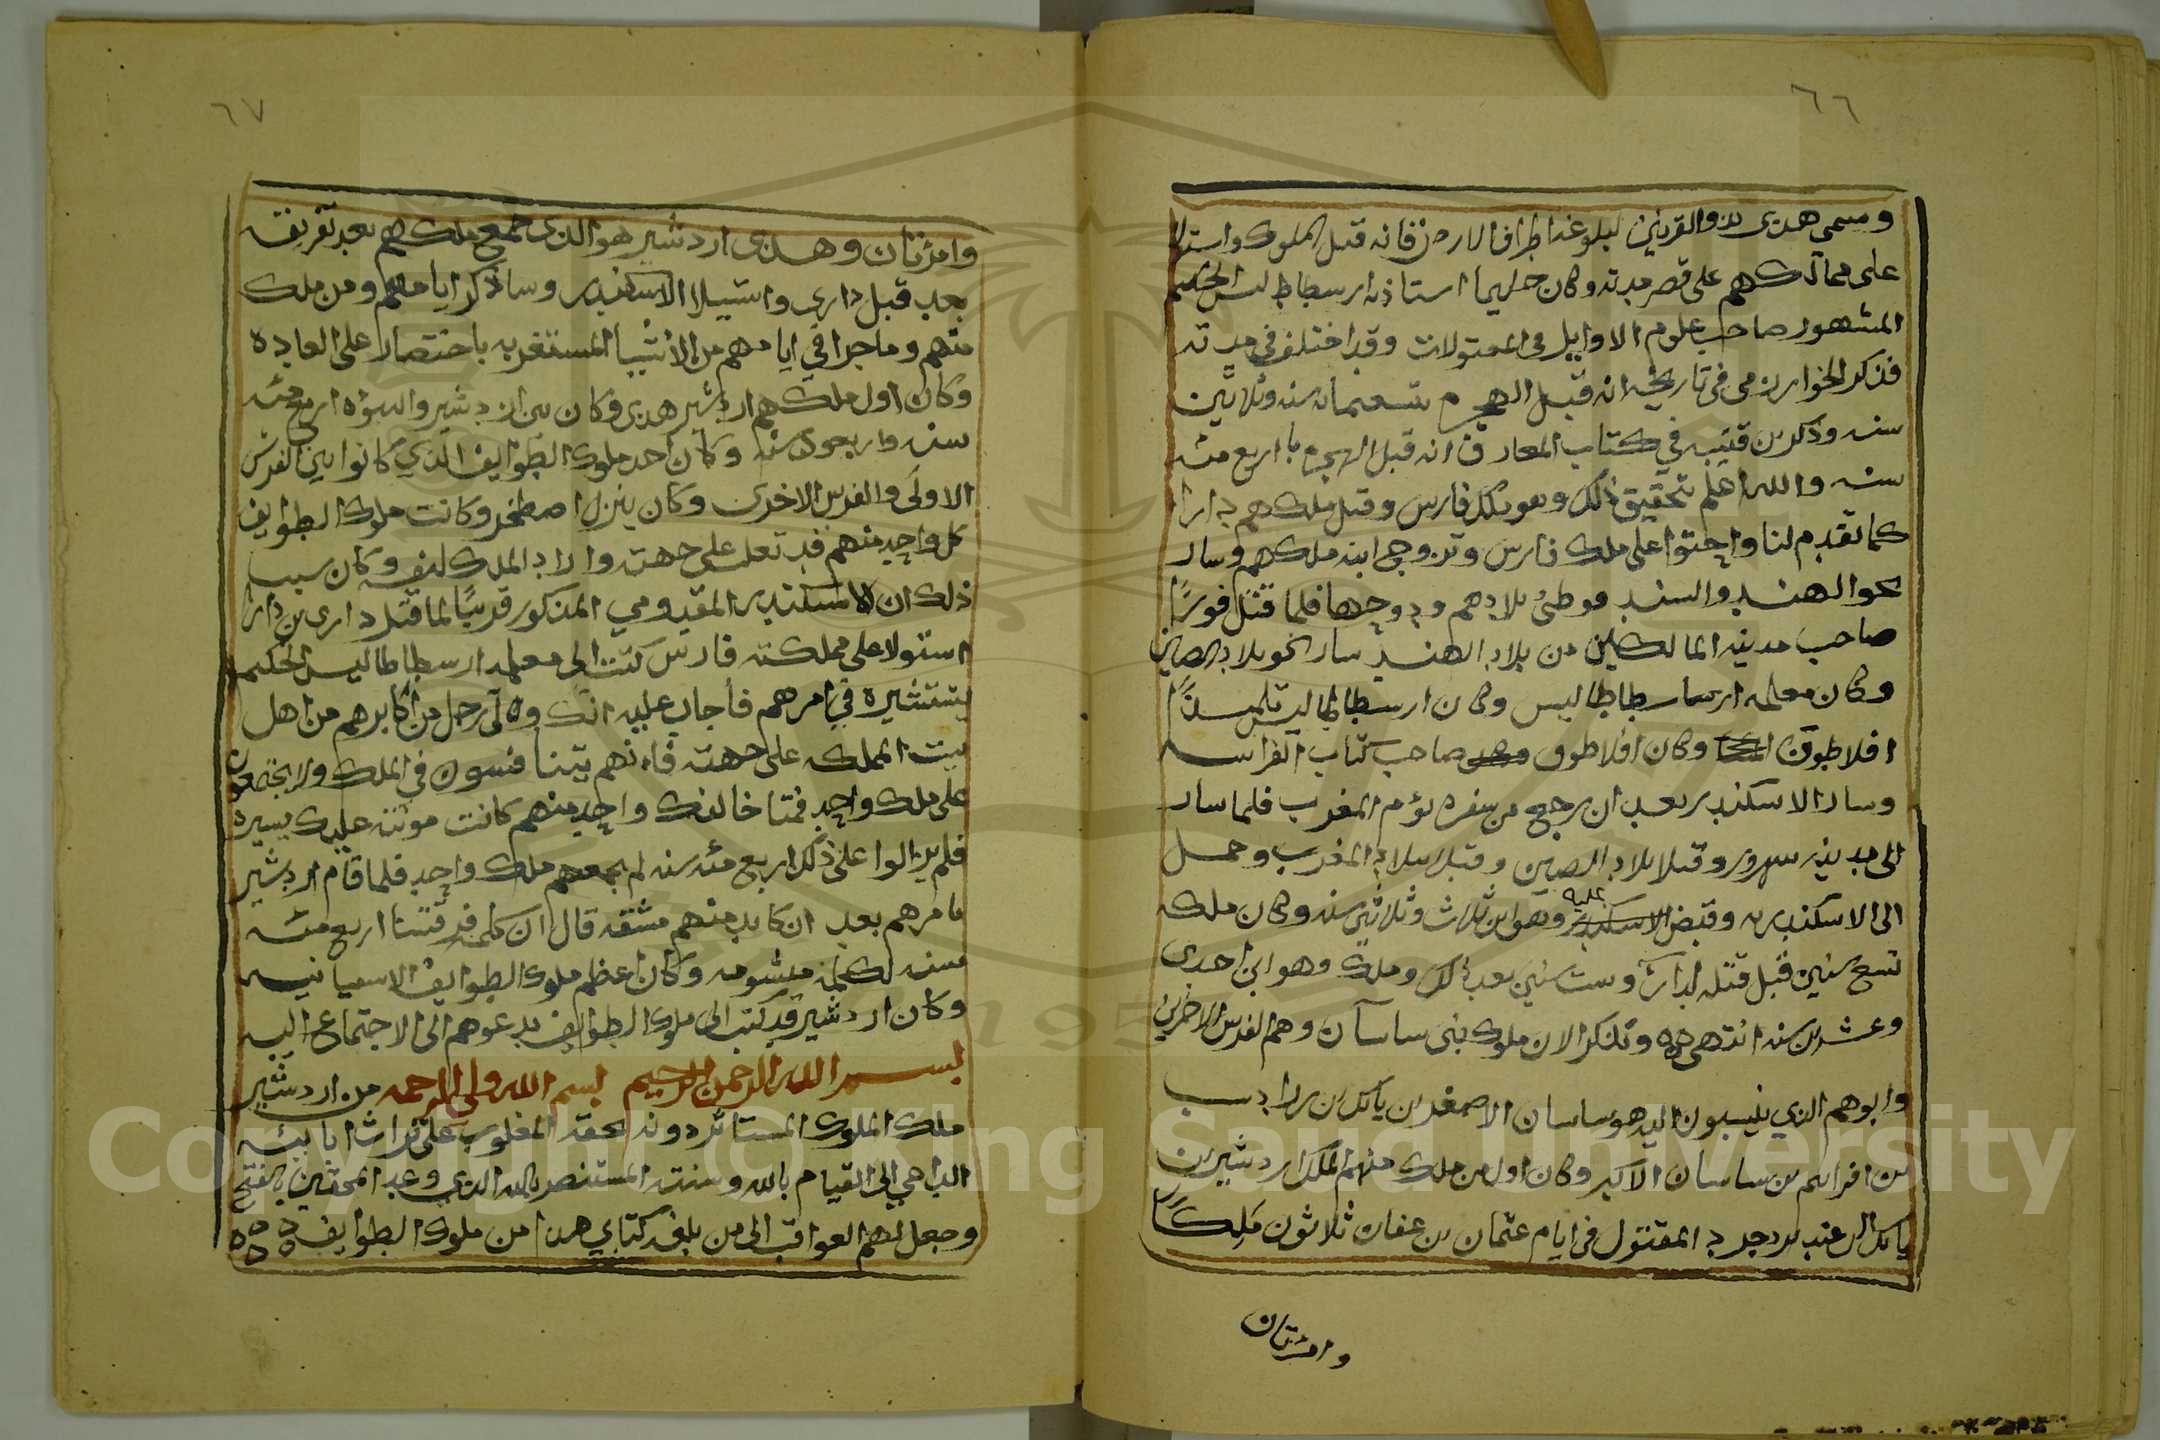 ٦٦
وسمى هدى ذو القرنين لبلوغه اطراف الارض فانه قتل الملوك واستولا
على ممالكهم على قصر مدته وكان حكيما استاذه ارسطاطاليس الحكيم
المشهور صاحب علوم الاوايل في المعقولات وقد اختلف في مدته
فذكر الخوارزمي في تاريخه انه قبل الهجره بتسعمائه سنه وثلاثين
سنه وذكر بن قتيبه في كتاب المعارف انه قبل الهجره باربع مئه
سنه والله اعلم بتحقيق ذلك وهو ملك فارس وقتل ملكهم دارا
كما تقدم لنا واحتوا على ملك فارس وتزوج ابنه ملكهم وسار
نحو الهند والسند فوطئ بلادهم ودوخها فلما قتل فورسًا
صاحب مدينه المالكين من بلاد الهند سار نحو بلاد الصين
وكان معلمه ارسطاطاليس وكان ارسطاطاليس تلميذًا
افلاطون وكان افلاطون صاحب كتاب الفراسه
وسار الاسكندر بعد ان رجع من سفره يؤم المغرب فلما سار
الى مدينه سهرور وقبل بلاد الصين وقبل بلاد المغرب وحمل
الى الاسكندريه وقبض الاسكندر عليه وهو ابن ثلاث وثلاثين سنه وكان ملكه
تسع سنين قبل قتله لدارا وست سنين بعد ذلك وملك وهو ابن احدى
وعشرين سنه انتهى ٥٥ ونذكر الان ملوك بني ساسان وهم الفرس الاخرين
وابوهم الذي ينسبون اليه هو ساسان الاصغر بن بابك بن
بن ساسان الاكبر وكان اول من ملك منهم الملك اردشير بن
بابك الى عند يزدجرد المقتول في ايام عثمان بن عفان ثلاثون مَلِكًا
وامرئتان
٦٧
وامرئتان وهدى اردشير هو الذي جمع ملكهم بعد تفريقه
بعد قبل دارى واستيلا الاسكندر وساذكر ايامهم ومن ملك
منهم وماجرا في ايامهم من الأشيا المستغربه باختصار على العاده
وكان اول ملكهم اردشير هدى وكان بين اردشير والنبؤه اربع مئه
سنه واربعون سنه وكان احد ملوك الطوايف الذي كانوا بين الفرس
الاولى والفرس الاخرى وكان ينزل اصطخر وكانت ملوك الطوايف
كل واحد منهم قد تغلب على جهته واراد الملك لنفسه وكان سبب
ذلك ان الاسكندر المقدومي المذكور قريبًا لما قتل دارى بن دارا
استولا على مملكته فارس كتب الى معلمه ارسطاطاليس الحكيم
يستشيره في امرهم فأجاب عليه انك ولّى رجل من اكابرهم من اهل
بيت المملكه على جهته فانهم يتنافسون في الملك ولا يجتمعون
على ملك واحد فمتا خالفك واحد منهم كانت مؤنته عليك يسيره
فلم يزالوا على ذلك اربع مئه سنه لم يجمعهم ملك واحد فلما قام اردشير
بامرهم بعد ان كابد منهم مشقه قال ان كلمه فرقتنا اربع مئه
سنه لكلمه ميشومه وكان اعظم ملوك الطوايف الاسعيانيه
وكان اردشير قد كتب الى ملوك الطوايف يدعوهم الى الاجتماع اليه
بسم الله الرحمن الرحيم بسم الله ولي الرحمه من اردشير
ملك الملوك المستاثر دونه بحقه المغلوب على تراث ابايئه
الداعي الى القيام بالله وسنته المستنصر بالله الذي وعد المحقين بالفتح
وجعل لهم العواقب الى من بلغه كتابي هدا من ملوك الطوايف ٥٥٥٥